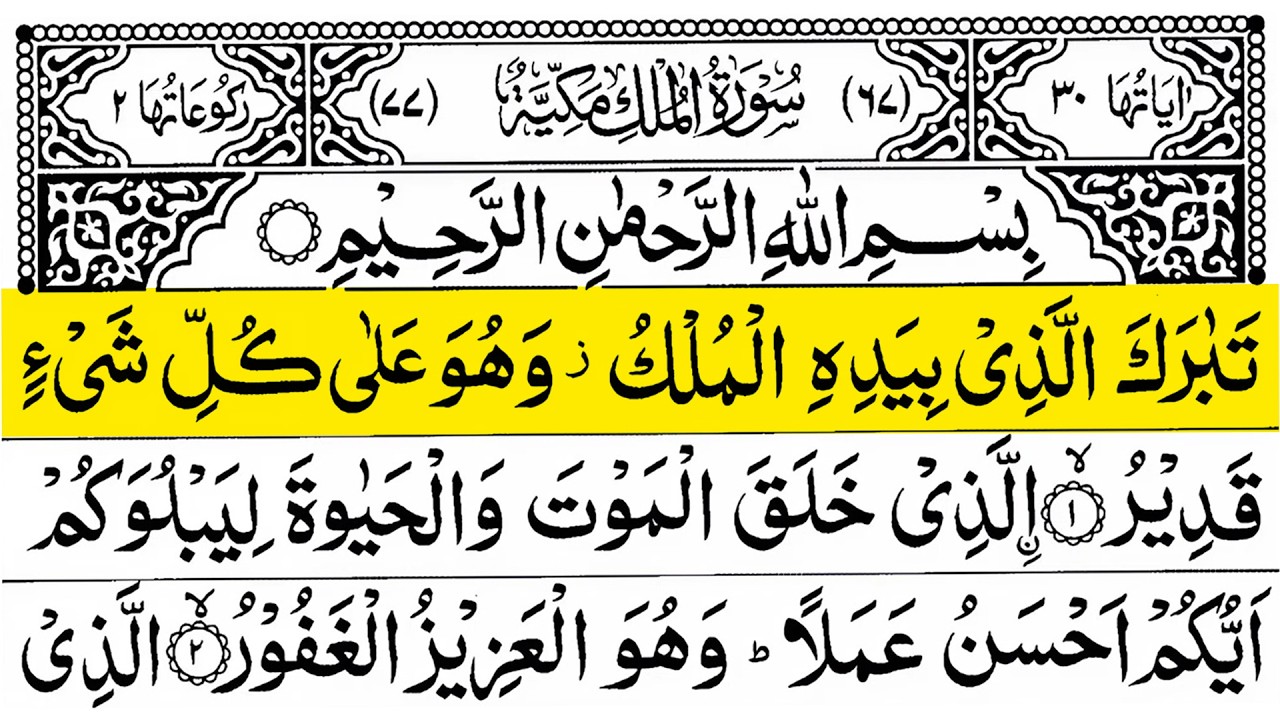 اٰيَاتُهَا ٣٠ (٦٧) سُوْرَةُ الْمُلْكِ مَكِّيَّةٌ (٧٧) رُكُوْعَاتُهَا ٢
بِسْـــمِ اللّٰهِ الرَّحْمٰنِ الرَّحِـيْمِ
تَبٰرَكَ الَّذِىْ بِيَدِهِ الْمُلْكُ ز وَهُوَ عَلٰى كُلِّ شَىْءٍ
قَدِيْرُ ۙ﴿١﴾ اِۨلَّذِىْ خَلَقَ الْمَوْتَ وَالْحَيٰوةَ لِيَبْلُوَكُمْ
اَيُّكُمْ اَحْسَنُ عَمَلًا ؕ وَهُوَ الْعَزِيْزُ الْغَفُوْرُ ۙ﴿٢﴾ الَّذِىْ